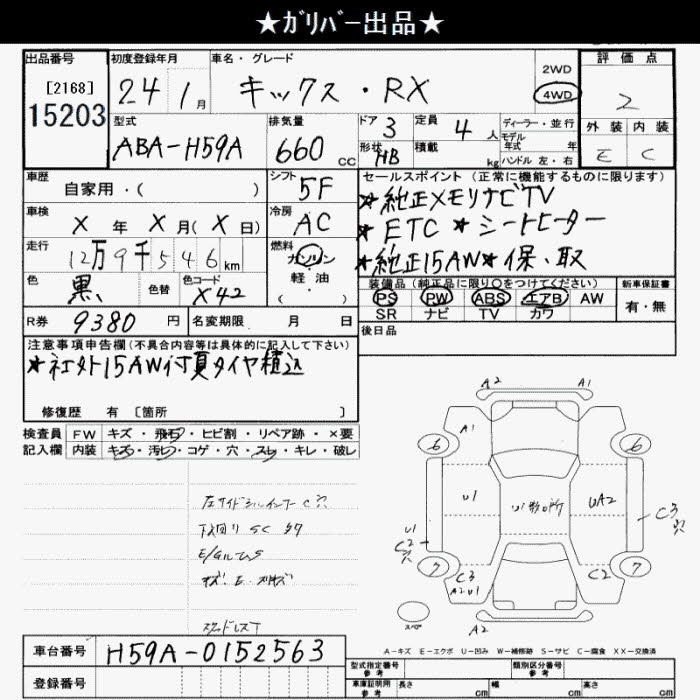 ★ガリバー出品★
出品番号 初度登録年月 車名・グレード
[2168] 15203 24 1月 キックス・RX 2WD 4WD
評価点 2
外装 内装
E C
型式 ABA-H59A 排気量 660cc ドア 3 形状 HB 定員 4人 積載 kg ディーラー・並行 モデル年式 年 ハンドル 左・右
車歴 自家用・( ) シフト 5F
セールスポイント(正常に機能するものに限ります)
★純正メモリナビTV
★ETC ★シートヒーター
★純正15AW★保、取
車検 X年X月(X日) 冷房 AC
走行 12万9千546km 燃料 ガソリン・軽油・( )
色 黒 色替 色コード X42
装備品(純正品に限り○をつけてください) 新車保証書
PS PW ABS エアB AW 有・無
SR ナビ TV カワ
R券 9380円 名変期限 月 日 後日品
注意事項申告欄(不具合内容等は具体的に記入して下さい)
★社外15AW付夏タイヤ積込
修復歴 有〔箇所 〕
検査員記入欄 FW キズ・飛石・ヒビ割・リペア跡・×要
内装 キズ・汚レ・コゲ・穴・スレ・キレ・破レ
左サイドシルインナーC穴
下廻りSCタケ
スタッドレスT
A2 A1
A1
6 6
U1 UA2
U1 C2穴 C3穴
7 7
C3 A2U1 C2
スペア A2
A-キズ E-エクボ U-凹み W-補修跡 S-サビ C-腐食 XX-交換済
車台番号 H59A-0152563
登録番号
型式指定番号 参考 類別区分番号 参考
車庫証明用 参考 長さ cm 幅 cm 高さ cm